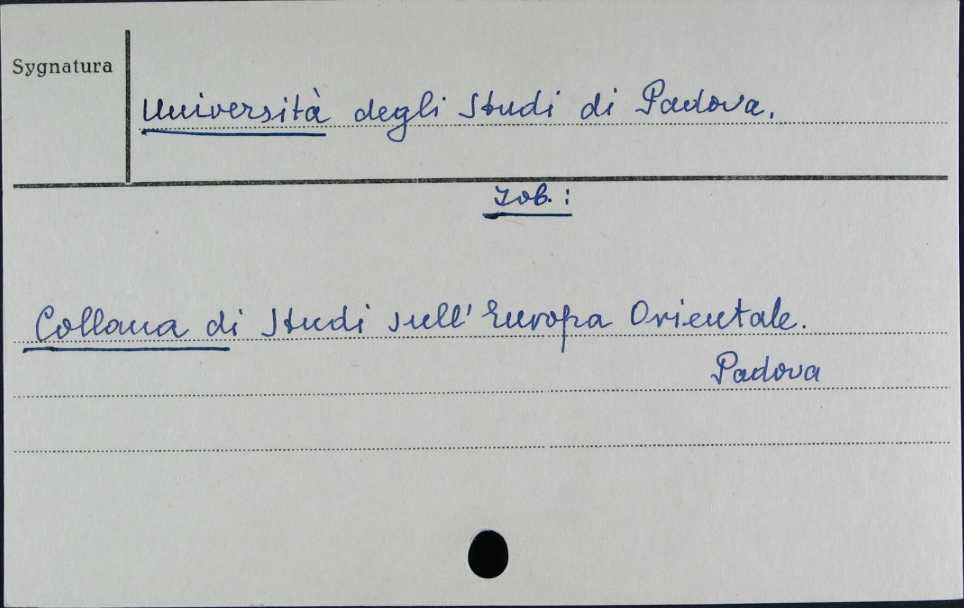 Sygnatura
Università degli Studi di Padova.
Zob.:
Collana di Studi sull'Europa Orientale.
Padova